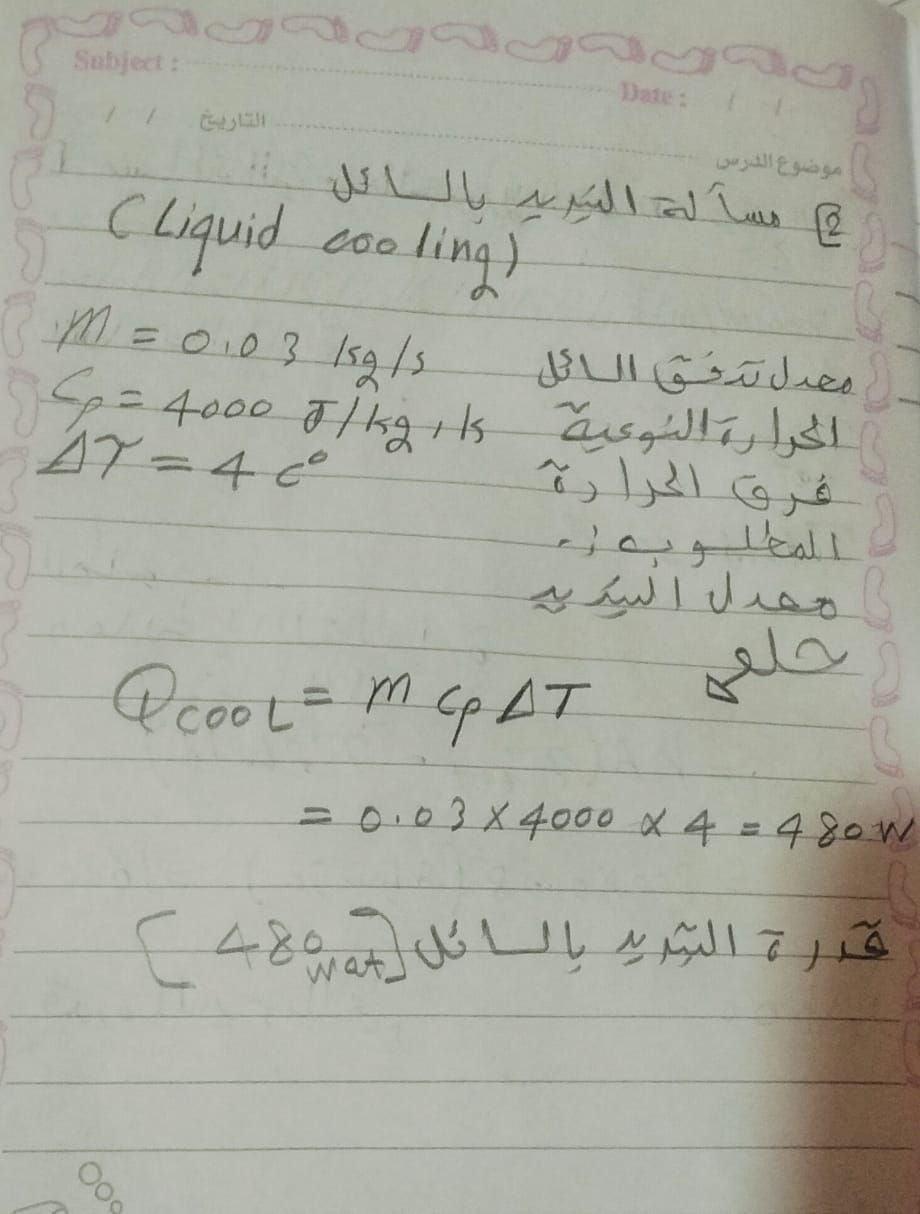 Subject :
Date : / /
التاريخ / /
موضوع الدرس
2 مسألة التبريد بالسائل
(Liquid cooling)
m = 0.03 kg/s معدل تدفق السائل
Cp = 4000 J/kg.k الحرارة النوعية
ΔT = 4 c° فرق الحرارة
المطلوب :-
معدل التبريد
حلهم
QCOOL = m Cp ΔT
= 0.03 x 4000 x 4 = 480 W
قدرة التبريد بالسائل [480 wat]